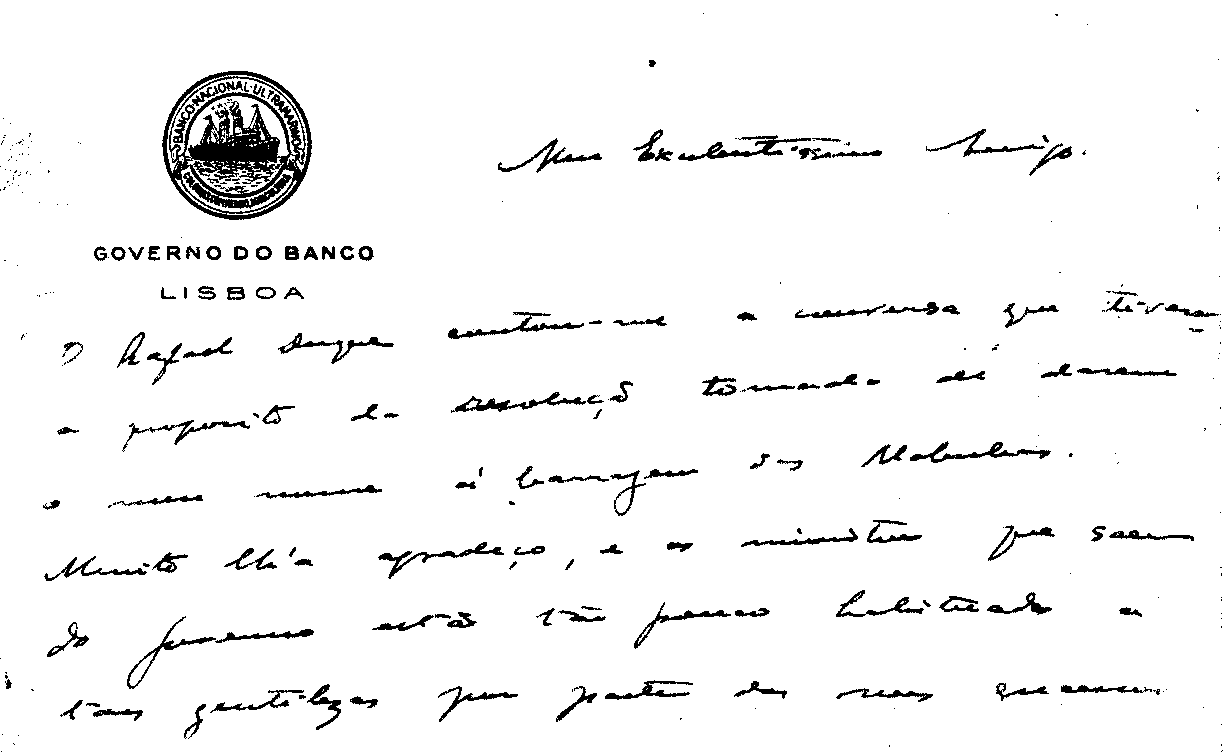 BANCO NACIONAL ULTRAMARINO
GOVERNO DO BANCO
LISBOA
Meu Excelentissimo Amigo.
O Rafael Duque contou-me a conversa que tiveram
a proposito da resolução tomada de darem
o meu nome á barragem dos
Muito lh'a agradeço, e os ministros que saem
do governo estão tão pouco habituados a
taes gentilezas por parte dos seus